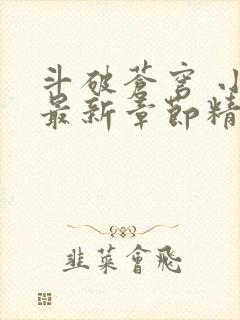 斗破蒼穹
最新章節精
韭菜會飛